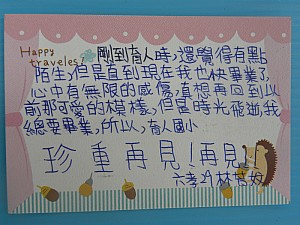 Happy
traveles
剛到育人時,還覺得有點
陌生,但是直到現在我也快畢業了,
心中有無限的感傷,真想再回到以
前那可愛的模樣,但是時光飛逝,我
總要畢業,所以,育人國小
珍重再見!再見!
六孝29林